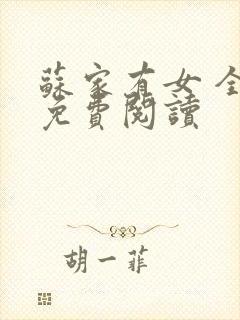 蘇家有女 全
免費閱讀
胡一菲